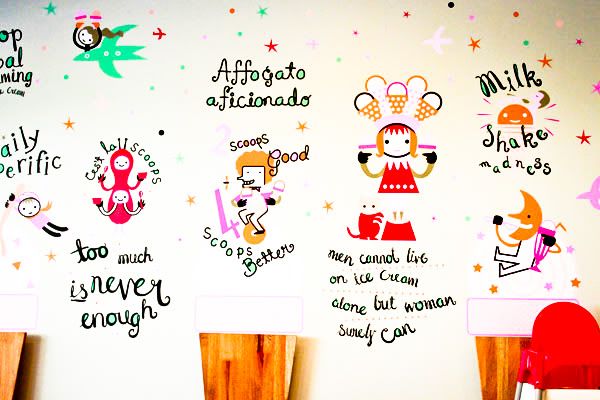 Affogato
aficionado
Milk
Shake
madness
2 scoops
Good
4
scoops
Better
C'est la scoops
too much
is never
enough
men cannot live
on ice cream
alone but woman
surely can